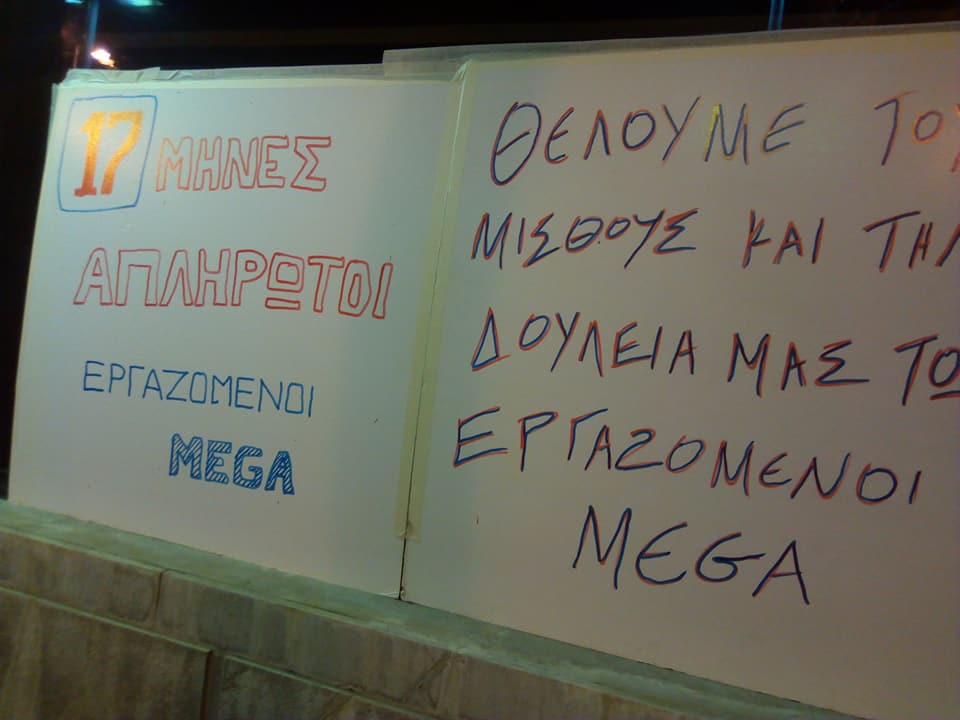 17 ΜΗΝΕΣ
ΑΠΛΗΡΩΤΟΙ
ΕΡΓΑΖΟΜΕΝΟΙ
MEGA
ΘΕΛΟΥΜΕ ΤΟΥ
ΜΙΣΘΟΥΣ ΚΑΙ ΤΗΝ
ΔΟΥΛΕΙΑ ΜΑΣ ΤΩ
ΕΡΓΑΖΟΜΕΝΟΙ
MEGA